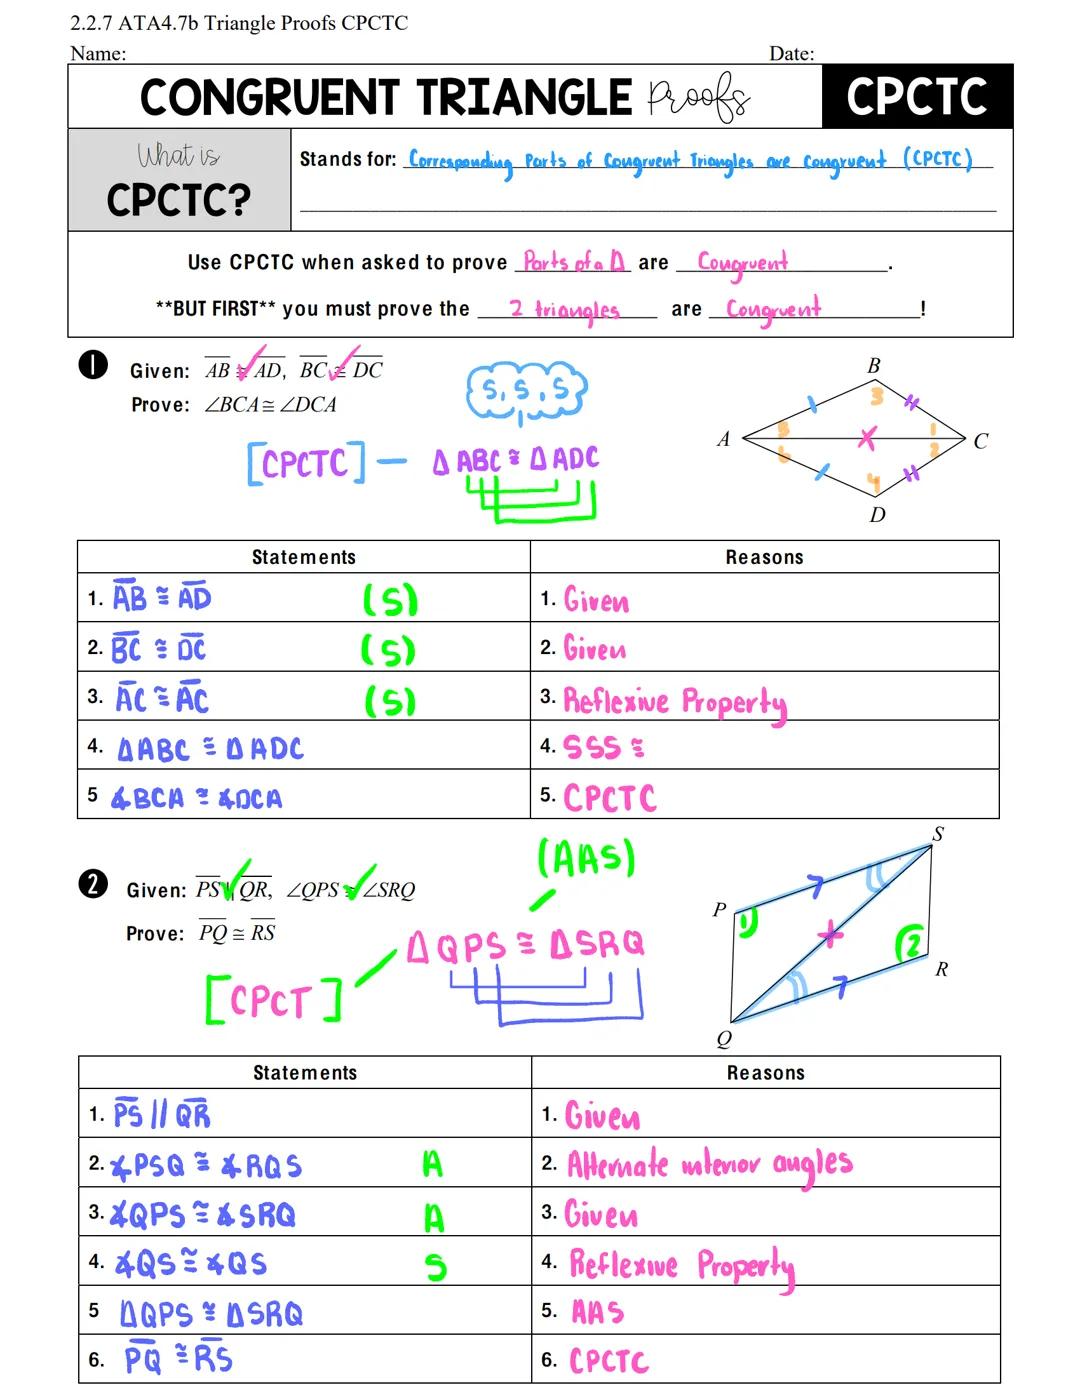 2.2.7 ATA4.7b Triangle Proofs CPCTC
Name: Date:
CONGRUENT TRIANGLE Proofs CPCTC
What is
CPCTC?
Stands for: Corresponding Parts of Congruent Triangles are Congruent (CPCTC)
Use CPCTC when asked to prove Parts of a Δ are Congruent.
**BUT FIRST** you must prove the 2 triangles are Congruent!
1 Given: AB ≅ AD, BC ≅ DC
Prove: ∠BCA ≅ ∠DCA
S, S, S
[CPCTC] — Δ ABC ≅ Δ ADC
B
3
5 1
A C
6 2
4
D
Statements Reasons
1. AB ≅ AD (S) 1. Given
2. BC ≅ DC (S) 2. Given
3. AC ≅ AC (S) 3. Reflexive Property
4. ΔABC ≅ ΔADC 4. SSS ≅
5 ∡BCA ≅ ∡DCA 5. CPCTC
(AAS)
2 Given: PS ∥ QR, ∠QPS ≅ ∠SRQ
Prove: PQ ≅ RS
ΔQPS ≅ ΔSRQ
[CPCT]
S
P
1
2
R
Q
Statements Reasons
1. PS // QR 1. Given
2. ∡PSQ ≅ ∡RQS A 2. Alternate interior angles
3. ∡QPS ≅ ∡SRQ A 3. Given
4. ∡QS ≅ ∡QS S 4. Reflexive Property
5 ΔQPS ≅ ΔSRQ 5. AAS
6. PQ ≅ RS 6. CPCTC